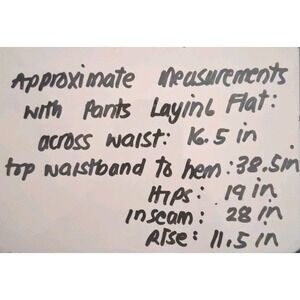 Approximate Measurements
with Pants Laying Flat:
across waist: 16.5 in
top waistband to hem: 38.5in
Hips: 19 in
inseam: 28 in
Rise: 11.5 in